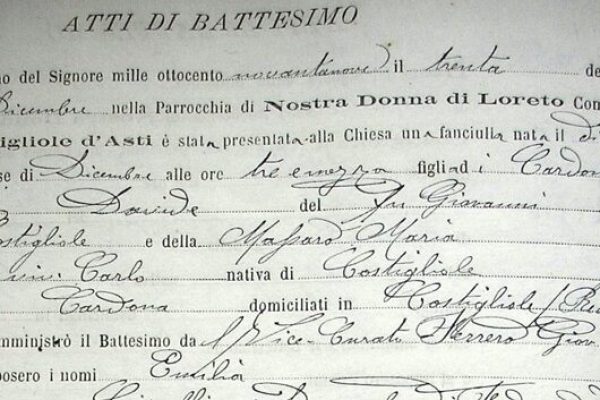 ATTI DI BATTESIMO
no del Signore mille ottocento novantanove il trenta de
Dicembre nella Parrocchia di Nostra Donna di Loreto Com
igliole d'Asti è stata presentata alla Chiesa una fanciulla nata il
se di Dicembre alle ore tre e mezza figlia di Cardon
Davide del fu Giovanni
ostigliole e della Massaro Maria
Carlo nativa di Costigliole
Cardona domiciliati in Costigliole
mministrò il Battesimo da Vice-Curato Ferrero Giov
posero i nomi Emilia